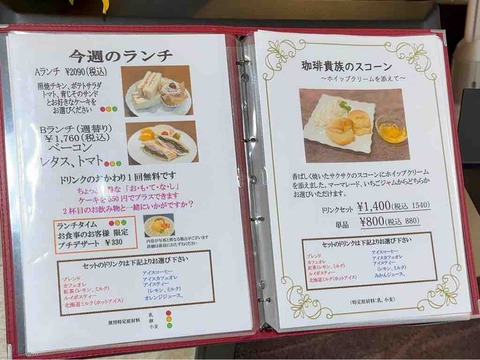 今週のランチ
Aランチ ¥2090(税込)
照焼チキン、ポテトサラダ
トマト、青じそのサンド
とお好きなケーキを
お選びください
Bランチ(週替り)
¥1,760(税込)
ベーコン
レタス、トマト
ドリンクのおかわり1回無料です
ちょっと な「お・も・て・な・し」
ケーキを 50円でプラスできます
2杯目のお飲み物と一緒にいかがですか?
ランチタイム
お食事のお客様 限定
プチデザート ¥330
セットのドリンクは下記よりお選び下さい
ブレンド
カフェオレ
紅茶(レモン、ミルク)
ルイボスティー
北海道ミルク(ホットアイス)
アイスコーヒー
アイスカフェオレ
アイスティー
(レモン、ミルク)
オレンジジュース、
使用特定原材料
乳
卵
小麦
珈琲貴族のスコーン
～ホイップクリームを添えて～
香ばしく焼いたサクサクのスコーンにホイップクリーム
を添えました、マーマレード、いちごジャムからどちらか
お選びいただけます。
ドリンクセット ¥1,400(税込 1540)
単品 ¥800(税込 880)
セットのドリンクは下記よりお選び下さい
ブレンド
カフェオレ
紅茶(レモン、ミルク)
ルイボスティー
北海道ミルク(ホットアイス)
アイスコーヒー
アイスカフェオレ
アイスティー
(レモン、ミルク)
みかんジュース、
(特定原材料:乳、小麦)